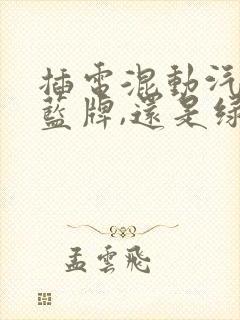 插電混動汽
藍牌,還是綠
孟雲飛